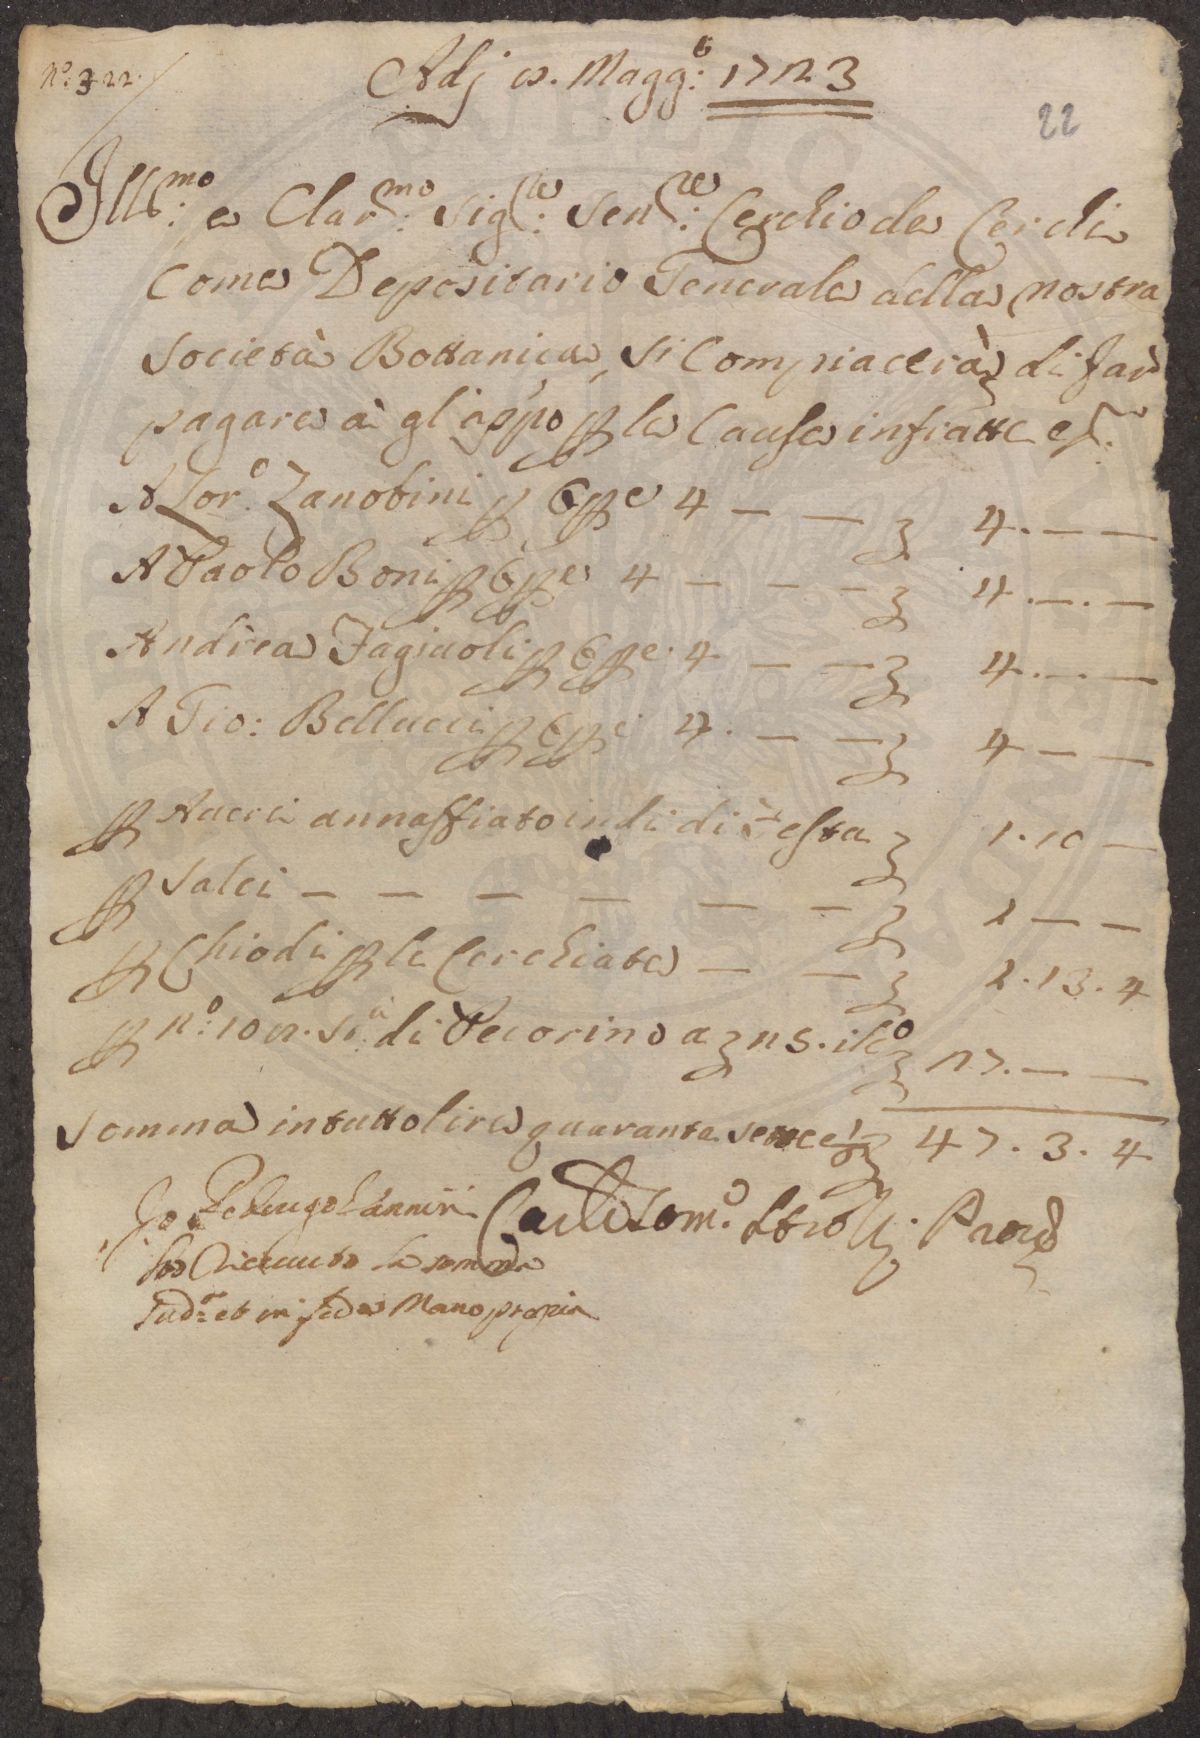 N.o 322.
Adj 2. Magg.o 1723
22
Ill.mo e Clar.mo Sig.re Sen.re Cerchio de Cerchi
Come Depositario Generale della nostra
Società Bottanica, si Compiacerà di far
pagare à gl'appo p le Cause infratte e
A Lor.o Zanobini p 6 pe 4 — — 4. — —
A Paolo Boni p 6 pe 4 — — — 4. — —
Andrea Fagiuoli p 6 pe 4 — — 4. — —
A Gio: Bellucci p 6 pe 4. — — 4 — —
p Avere annaffiato in di di Festa 1. 10 —
p Salci — — — — — — 2 — —
p Chiodi p le Cerchiate — — 2. 13. 4
p n.o 102. st.a di Pecorino a 5. il c.o 17. — —
Somma in tutto lire quaranta sette 47. 3. 4
Io Vannini Carlo Tom.o Strozzi Prov.e
ho Riceuuto la somma
Sud.a et in fede Mano propria